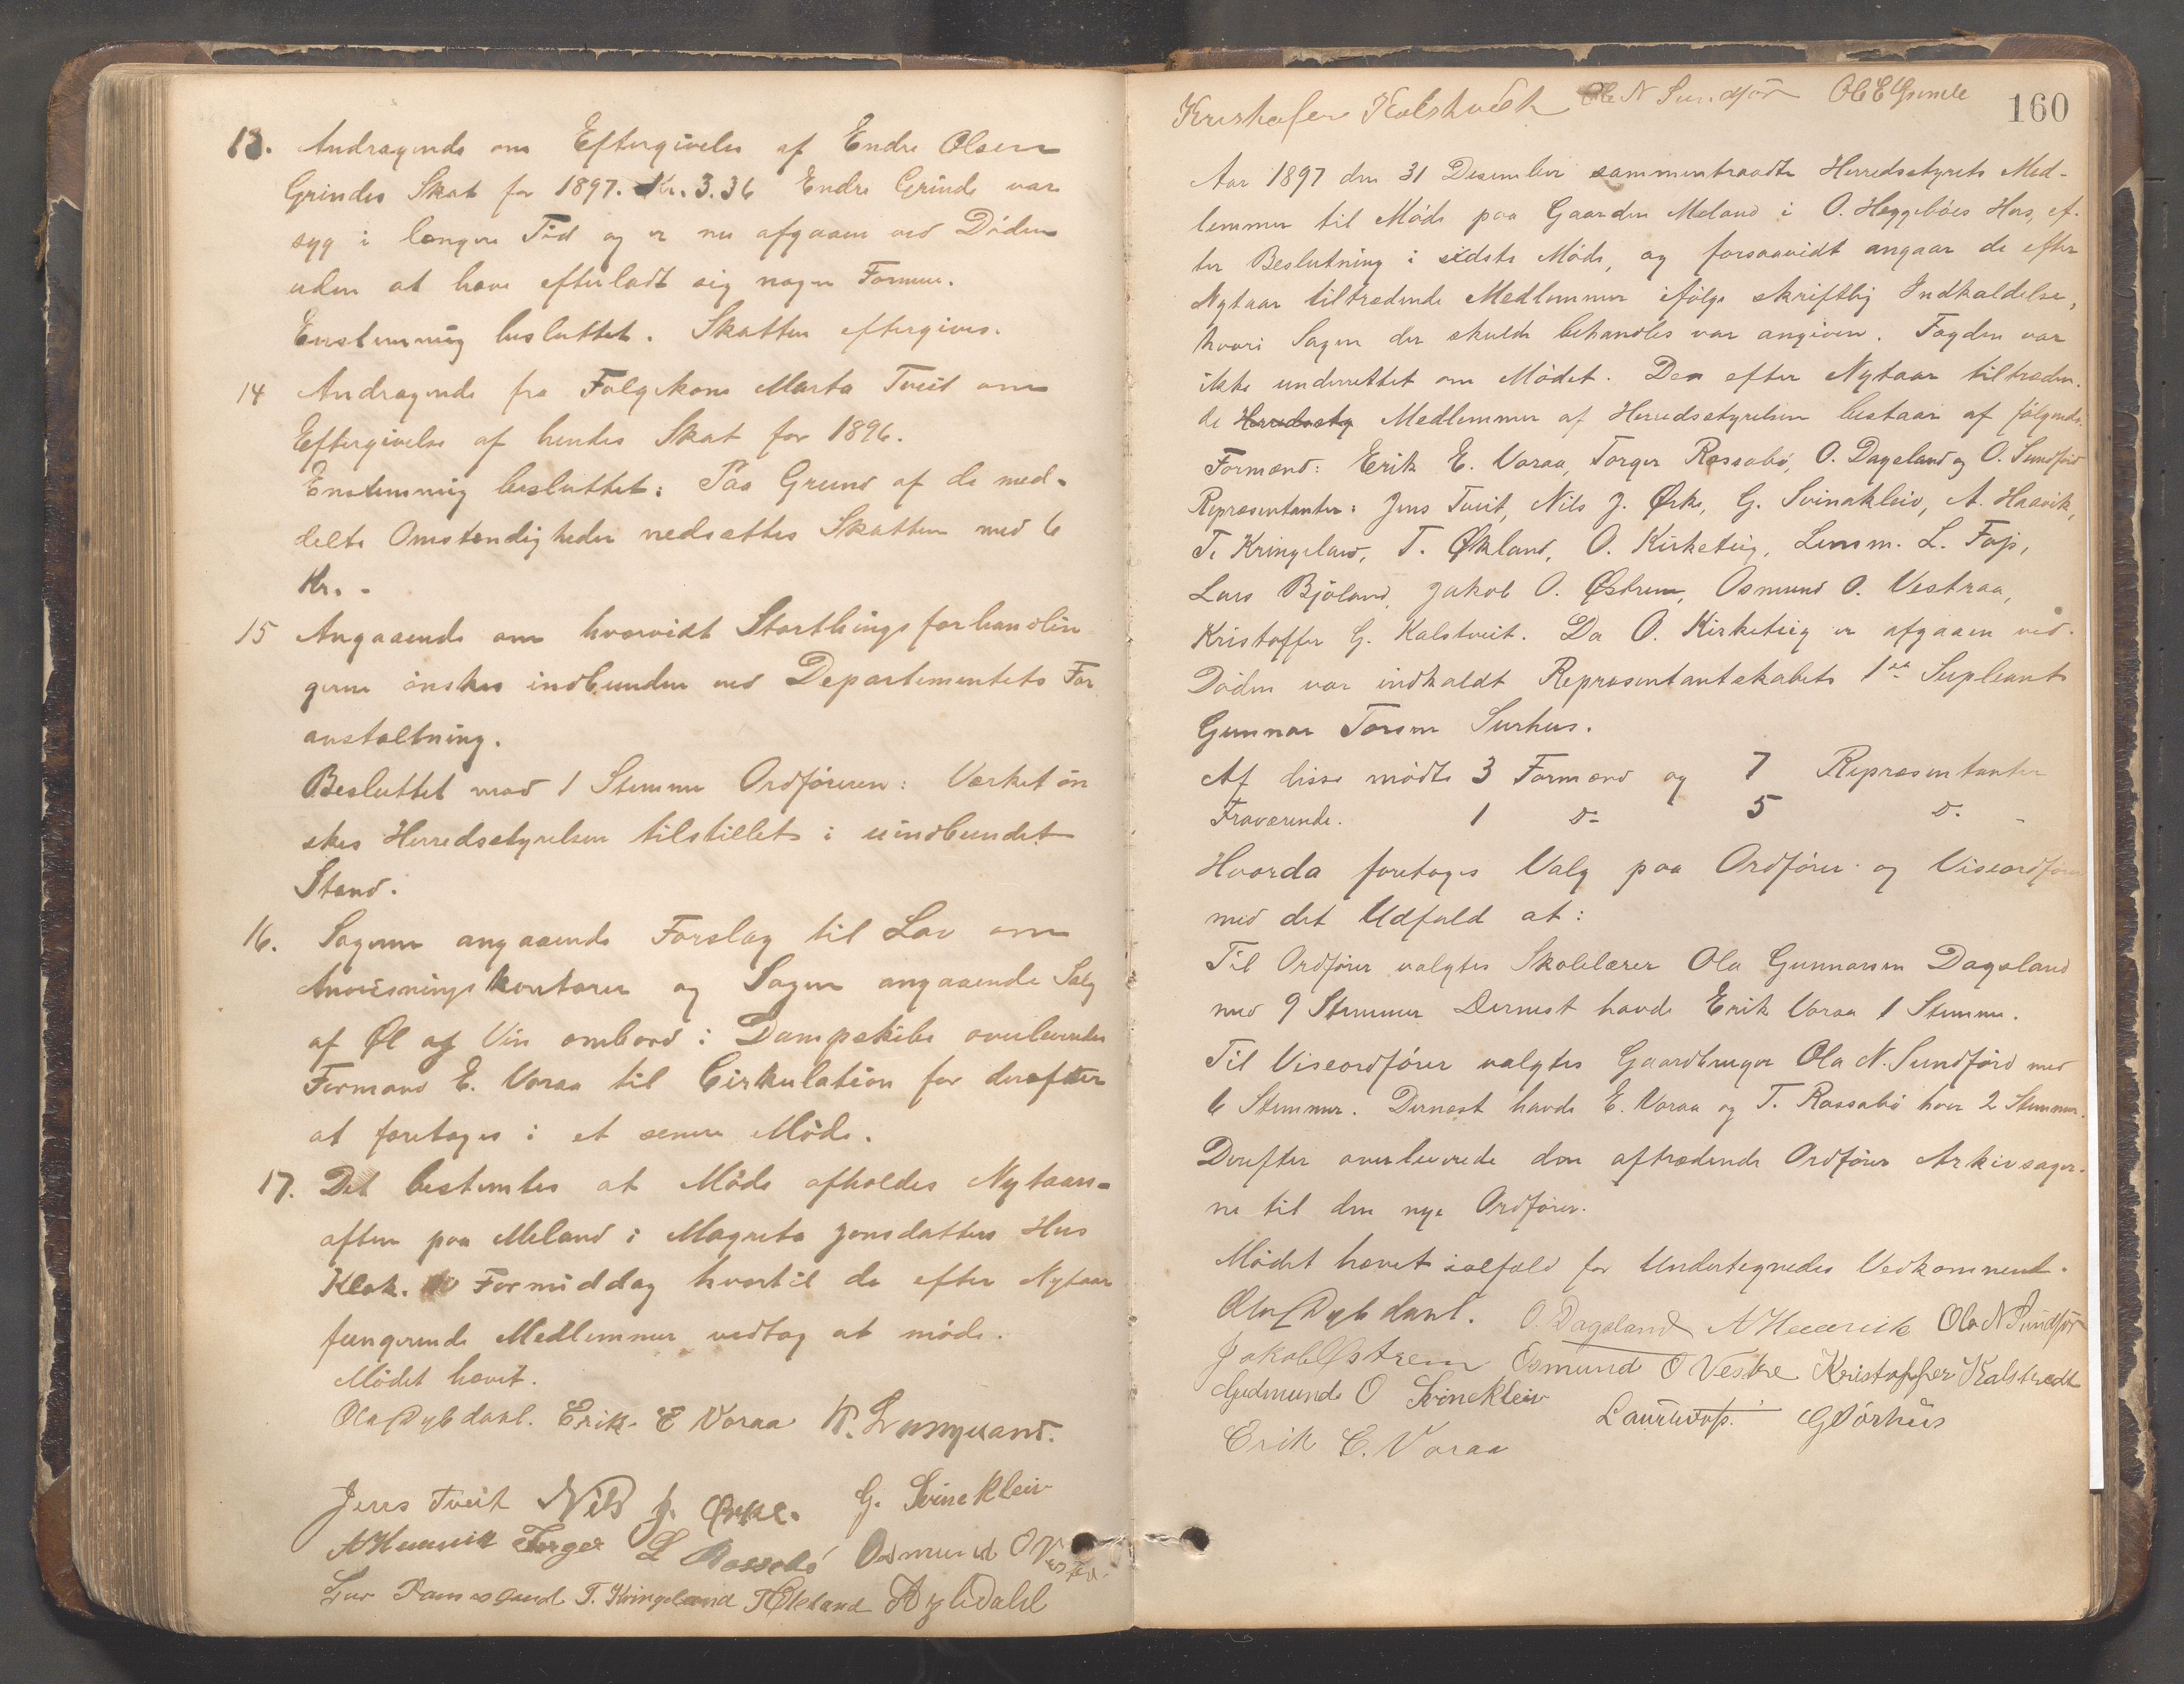 13. Andragende om Eftergivelse af Endre Olsen
Grindes Skat for 1897. Kr. 3.36 Endre Grinde var
syg i længere Tid og er nu afgaaen ved Døden
uden at have efterladt sig nogen Formue.
Enstemmig besluttet. Skatten eftergives.
14 Andragende fra Folgekone Marta Tveit om
Eftergivelse af hendes Skat for 1896.
Enstemmig besluttet: Paa Grund af de med-
delte Omstændigheder nedsættes Skatten med 6
Kr. -
15 Angaaende om hvorvidt Storthingsforhandlin
gerne ønskes indbunden ved Departementets For
anstaltning.
Besluttet mod 1 Stemme Ordføreren: Værket øn
skes Herredsstyrelsen tilstillet i uindbundet
Stand.
16. Sagerne angaaende Forslag til Lov om
Anvisningskontorer og Sagen angaaende Salg
af Øl og Vin ombord i Dampskibe overleveredes
Formand E. Voraa til Cirkulation for derefter
at foretages i et senere Møde.
17. Det bestemtes at Møde afholdes Nytaars-
aften paa Meland i Magreta Jonsdatters Hus
Klok. 10 Formiddag hvortil de efter Nytaar
fungerende Medlemmer vedtog at møde.
Mødet hævet.
Ola Dybdahl. Erik E Voraa
Jens Tveit Nils J. Ørke. G. Svinekleiv
A Haavik Torger L Rossebø Osmund O Vestre
T. Kringeland T Økland
Kristofer Kalstvedt Ola N Sundfør Ol E Grinde
160
Aar 1897 den 31 Desember sammentraadte Herredsstyrets Med-
lemmer til Møde paa Gaarden Meland i O. Heggebøes Hus, ef-
ter Beslutning i sidste Møde, og forsaavidt angaar de efter
Nytaar tiltrædende Medlemmer ifølge skriftlig Indkaldelse,
hvori Sagen der skulde behandles var angiven. Fogden var
ikke underrettet om Mødet. De efter Nytaar tiltræden-
de Herredssty Medlemmer af Herredsstyrelsen bestaar af følgende.
Formænd: Erik E. Voraa, Torger Rossabø, O. Dagsland og O. Sundførd
Repræsentanter: Jens Tveit, Nils J. Ørke, G. Svinakleiv, A. Haavik,
T. Kringeland, T. Økland, O. Kirketeig, Lensm. L. Fos,
Lars Bjøland, Jakob O. Østrem, Osmund O. Vestraa,
Kristoffer G. Kalstveit. Da O. Kirketeig er afgaaen ved
Døden var indkaldt Repræsentantskabets 1ste Supleant
Gunnar Torsen Surhus.
Af disse mødte 3 Formænd og 7 Repræsentanter
Fraværende. 1 D- 5 D- -
Hvorda foretages Valg paa Ordfører og Viseordfører
med det Udfald at:
Til Ordfører valgtes Skolelærer Ola Gunnarsen Dagsland
med 9 Stemmer Dernest havde Erik Voraa 1 Stemme.
Til Viseordfører valgtes Gaardbruger Ola N. Sundførd med
6 Stemmer. Dernæst havde E. Voraa og T. Rossabø hver 2 Stemmer.
Derefter overleverede den aftrædende Ordfører Arkivsager-
ne til den nye Ordfører.
Mødet hævet ialfald for Undertegnedes Vedkommend.
Ola Dybdahl. O. Dagsland A Haavik Ola N Sundfør
Jakob Østrem Osmund O Vestre Kristoffer Kalstvedt
Gudmund O Svinekleiv G Sørhus
Erik E. Voraa